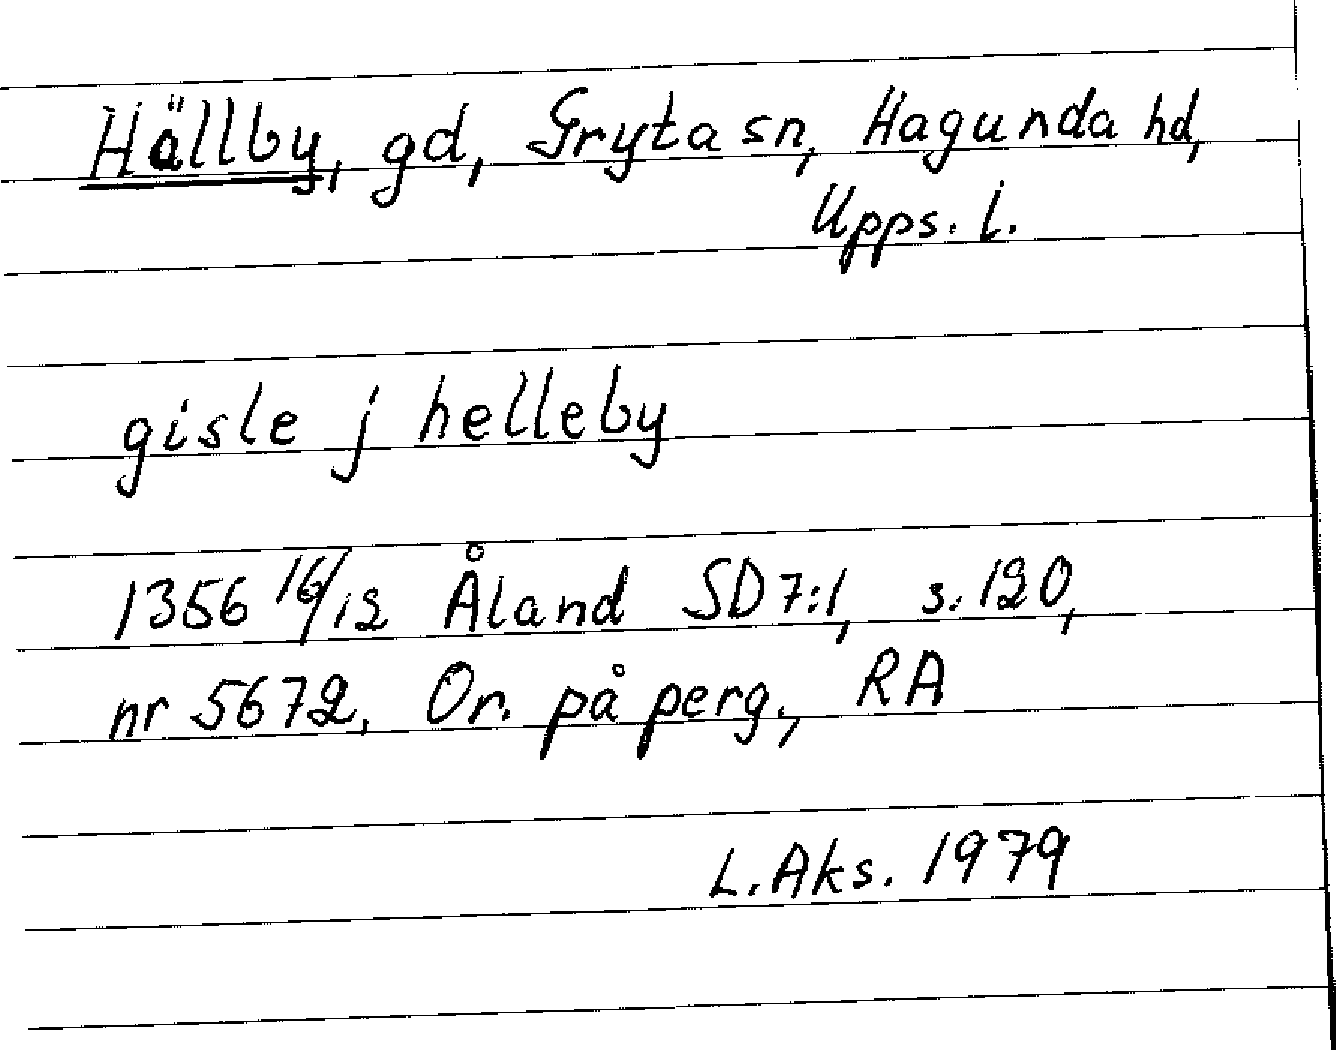 Hällby, gd, Gryta sn, Hagunda hd,
Upps. l.
gisle j helleby
1356 16/12 Åland SD 7:1, s. 120,
nr 5672, Or. på perg., RA
L. Aks. 1979